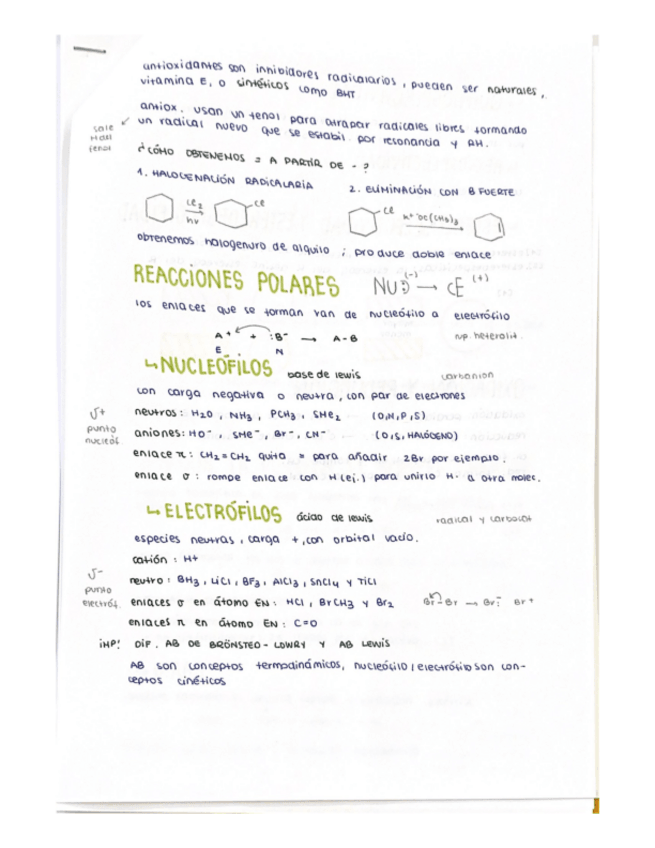 antioxidantes son inhibidores radicalarios, pueden ser naturales,
vitamina E, o sintéticos como BHT
antiox. usan un fenol para atrapar radicales libres formando
un radical nuevo que se estabil. por resonancia y RH.
sale
H del
fenol
¿CÓMO OBTENEMOS = A PARTIR DE - ?
1. HALOGENACIÓN RADICALARIA
2. ELIMINACIÓN CON B FUERTE
Cl2
hν
Cl
Cl
K+ -OC(CH3)3
obtenemos halogenuro de alquilo ; produce doble enlace
REACCIONES POLARES NU: (-) → E (+)
los enlaces que se forman van de nucleófilo a electrófilo
A+ + :B- → A-B
rup. heterolit.
E N
↳ NUCLEÓFILOS base de lewis
carbanion
con carga negativa o neutra, con par de electrones
neutros: H2O, NH3, PCH3, SMe2 (O,N,P,S)
δ+
punto
nucleóf.
aniones: HO-, SMe-, Br-, CN- (O,S, HALÓGENO)
enlace π: CH2=CH2 quito = para añadir 2Br por ejemplo.
enlace σ: rompe enlace con H (ej.) para unirlo H- a otra molec.
↳ ELECTRÓFILOS ácido de lewis
radical y carbocat
especies neutras, carga +, con orbital vacío.
catión: H+
neutro: BH3, LiCl, BF3, AlCl3, SnCl4 y TiCl
δ-
punto
electróf.
enlaces σ en átomo EN: HCl, BrCH3 y Br2
Br-Br → Br:- Br+
enlaces π en átomo EN: C=O
iMP! DIF. AB DE BRÖNSTED-LOWRY Y AB LEWIS
AB son conceptos termodinámicos, nucleófilo/electrófilo son con-
ceptos cinéticos